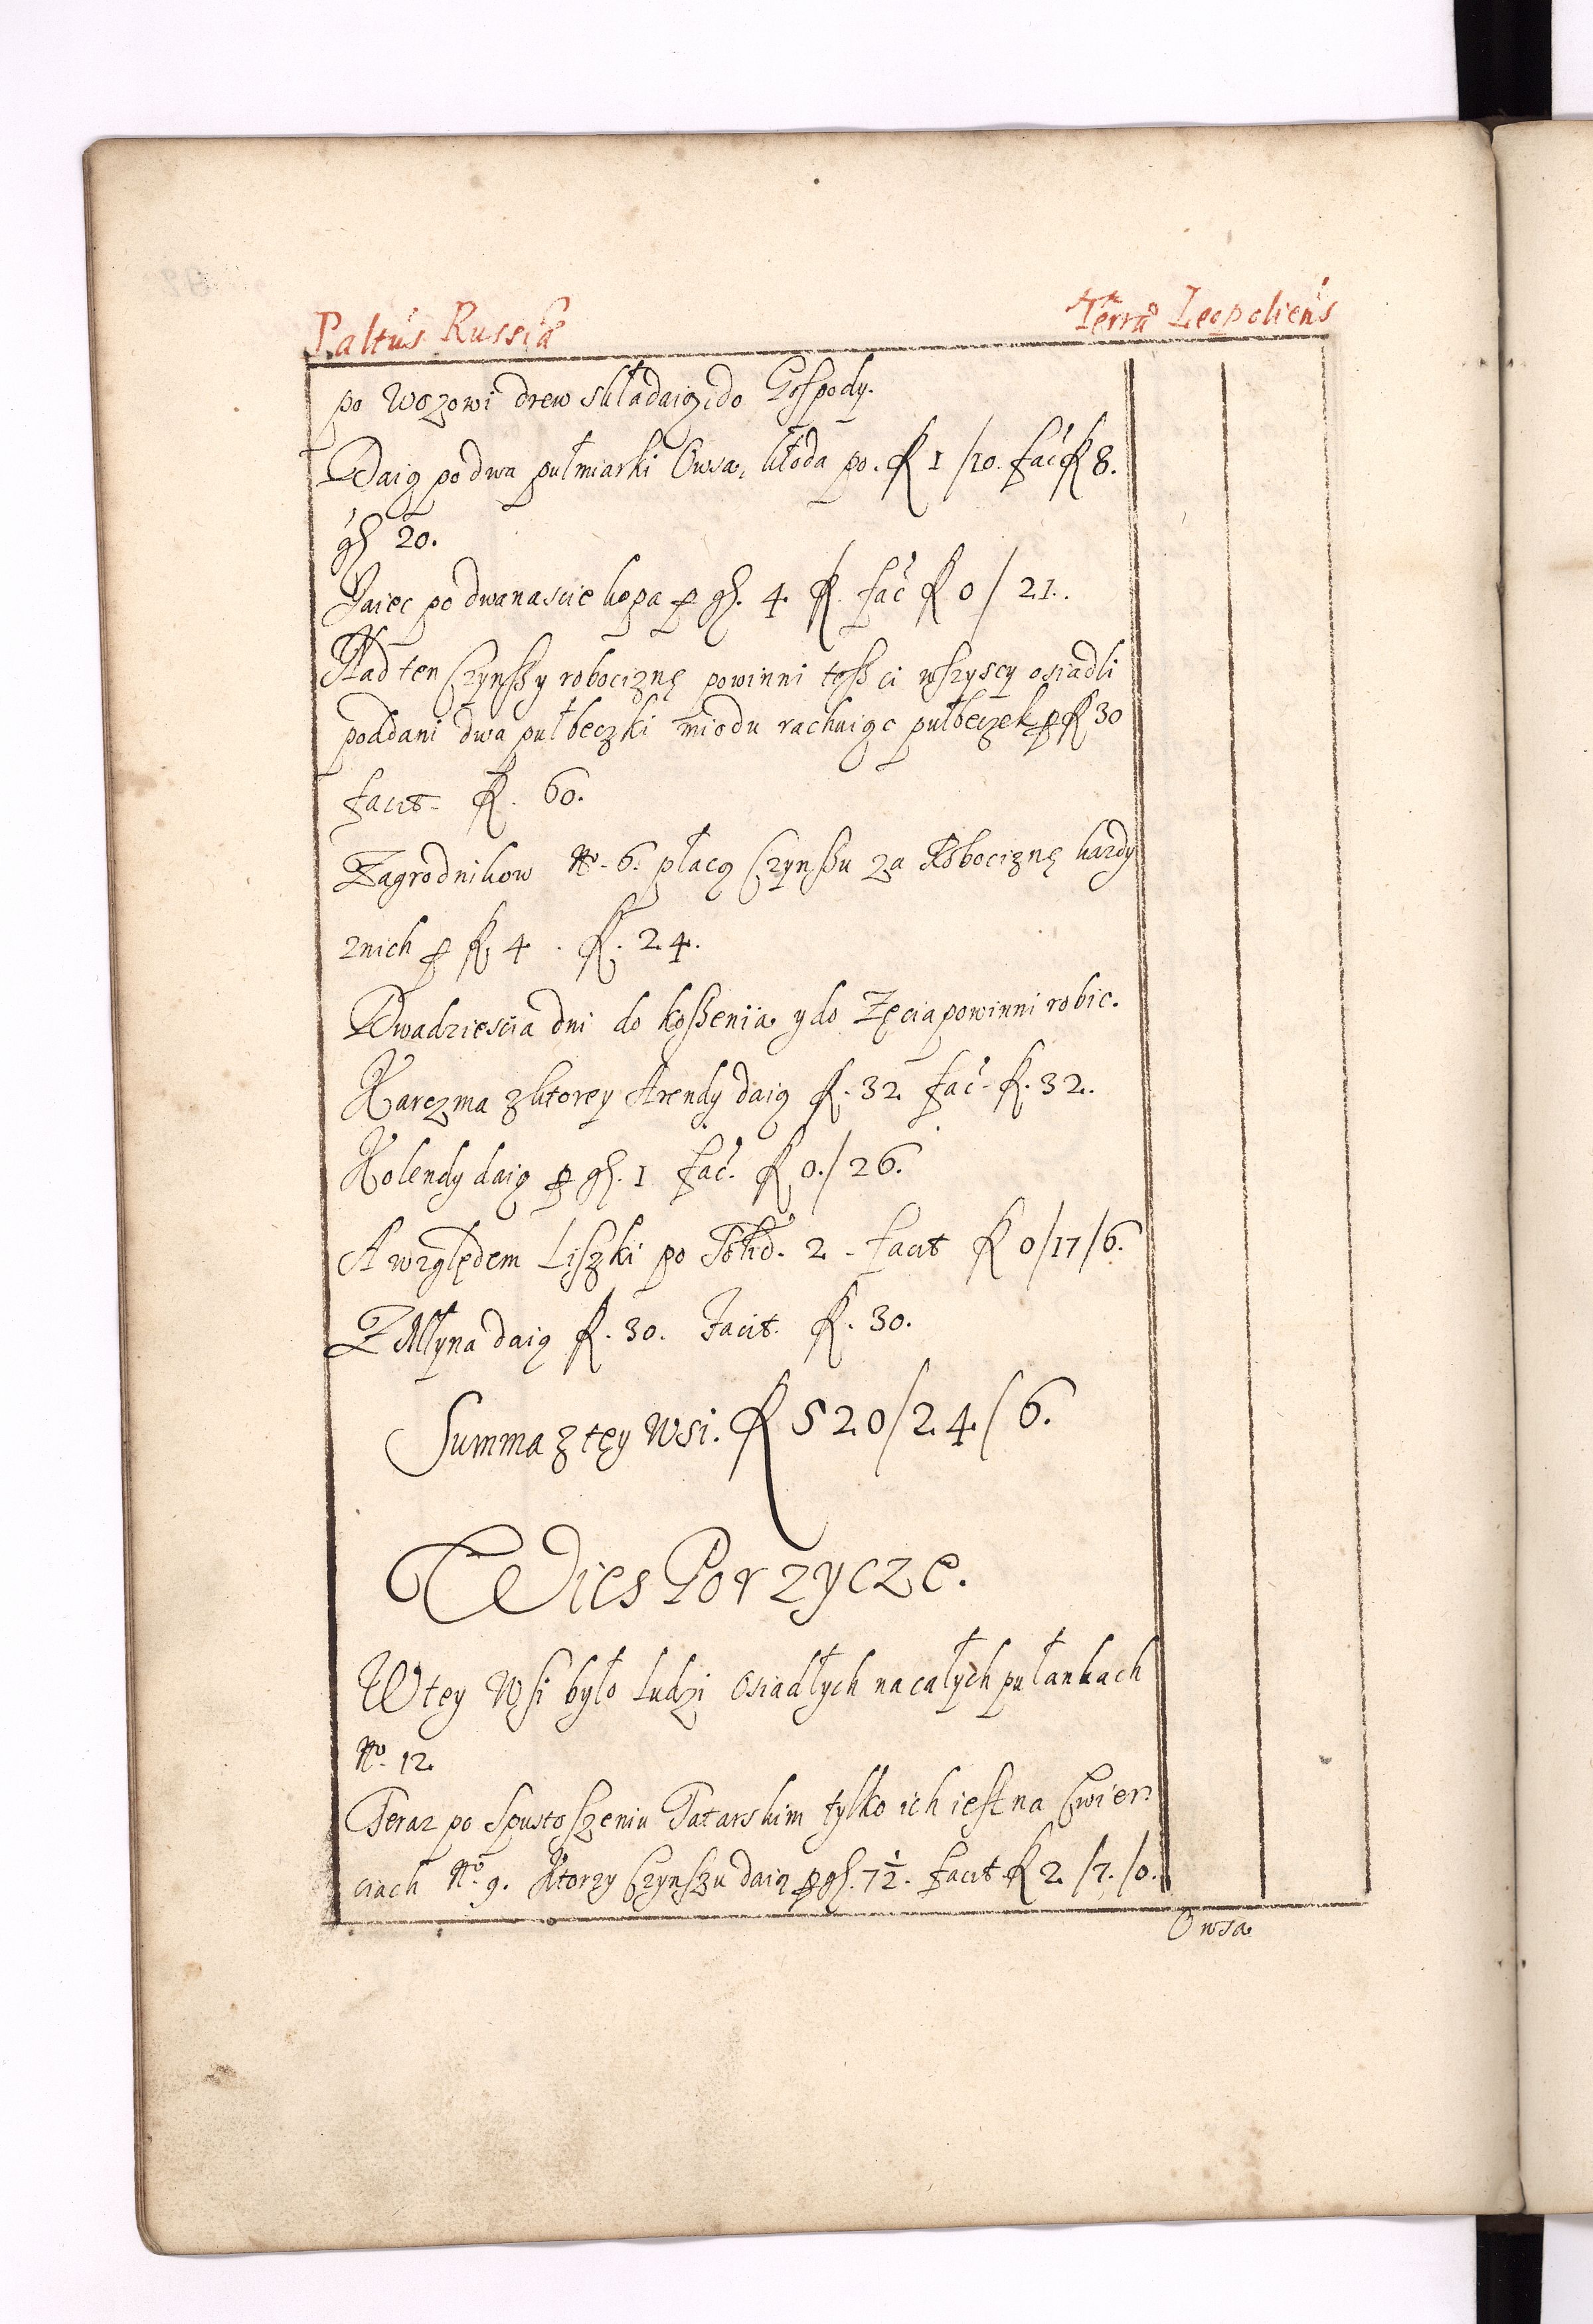 Paltus Russiæ
Terræ Leopoliens
po Wozowi drew składaią do Gospody.
Daią po dwa pułmiarki Owsa, kłoda po. fl 1 /10. fac fl 8.
gß 20.
Jaiec po dwanascie kopa p gß. 4. fl. fac fl 0 / 21.
Nad ten Czynsz y robociznę powinni tesz ci wszyscy osiadli
poddani dwa pułbeczki miodu rachuiąc pułbeczek p fl 30
facit fl. 60.
Zagrodnikow No. 6. płacą Czynszu za Robociznę kazdy
znich p fl 4. fl. 24.
Dwadziescia dni do koszenia y do Zęcia powinni robic.
Karczma zktorey Arendy daią fl. 32 fac. fl. 32.
Kolendy daią p gß. 1 fac. fl 0./26.
A względem Liszki po 2 - facit fl 0/17/6.
Z Młyna daią fl. 30. facit. fl. 30.
Summa z tey wsi. fl 520/24/6.
Wies Porzycze.
W tey Wsi było Ludzi Osiadłych na całych pułankach
No. 12.
Teraz po Spustoszeniu Tatarskim tylko ich iest na Cwier=
ciach No. 9. Ktorzy Czynszu daią p gß. 7½. facit fl 2 /7. /0.
Owsa